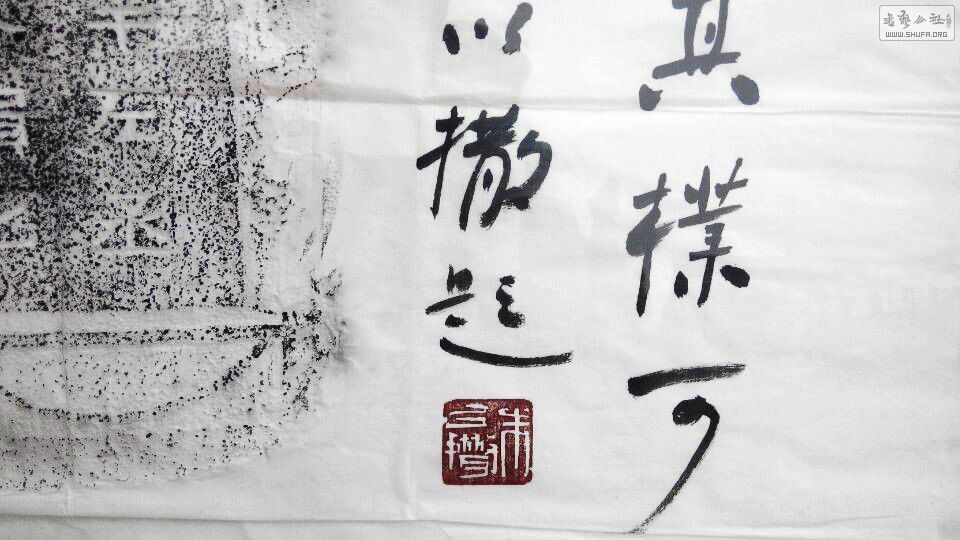 其樸可
以撒題
朱以撒
书艺公社
WWW.SHUFA.ORG